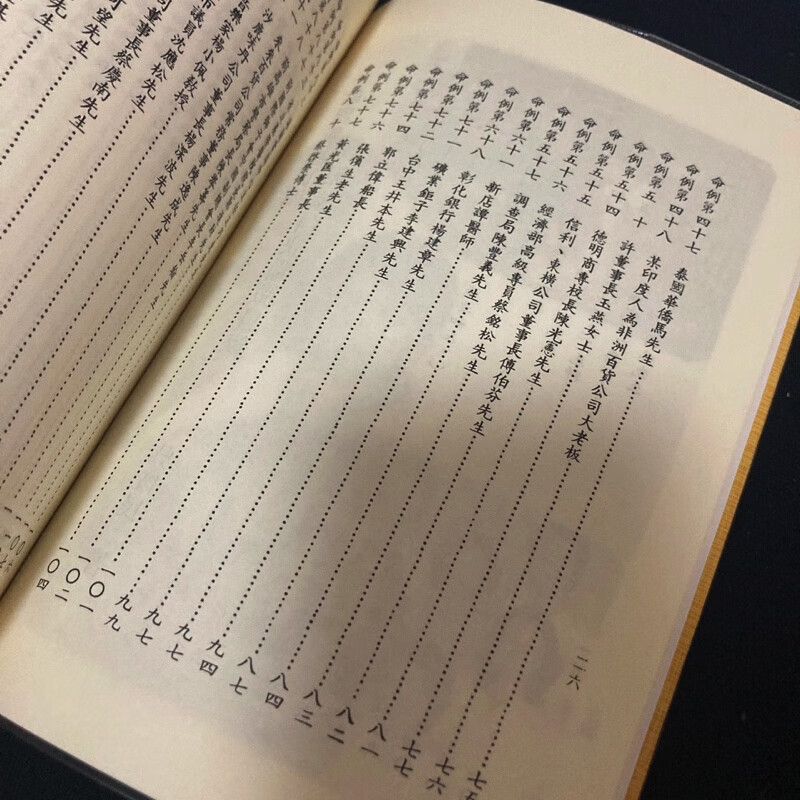 二六
命例第四十七 泰國華僑馬先生 七五
命例第四十八 某印度人為非洲百貨公司大老板 七六
命例第五十 許董事長玉燕女士 七七
命例第五十四 德明商專校長陳光憲先生 八一
命例第五十五 信利、東橫公司董事長傅伯芬先生 八二
命例第五十六 經濟部高級專員蔡銘松先生 八三
命例第五十七 調查局陳豐義先生 八四
命例第六十一 新店譚醫師 八七
命例第六十八 彰化銀行楊建章先生 九四
命例第七十一 礦業鉅子李建興先生 九七
命例第七十二 台中王井本先生 九七
命例第七十四 郭立偉船長 九九
命例第七十六 張儐生老先生 一〇一
命例第七十七 黃光匡董事長 一〇二
命例第八十 一〇四
沙鹿味丹公司董事長楊深波先生
音樂家楊小佩教授
市議員沈應松先生
司董事長蔡慶南先生
可望先生
先生